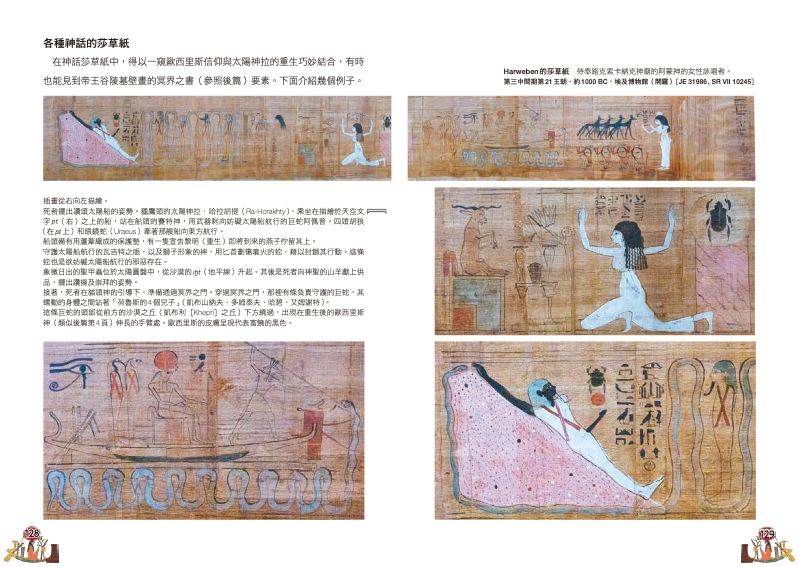 各種神話的莎草紙
在神話莎草紙中，得以一窺歐西里斯信仰與太陽神拉的重生巧妙結合，有時
也能見到帝王谷陵墓壁畫的冥界之書（參照後篇）要素。下面介紹幾個例子。
Harweben的莎草紙　侍奉路克索卡納克神廟的阿蒙神的女性詠唱者。
第三中間期第21王朝，約1000 BC，埃及博物館（開羅）［JE 31986, SR VII 10245］
插畫從右向左描繪。
死者擺出讚頌太陽船的姿勢。獵鷹頭的太陽神拉‧哈拉胡提（Ra-Horakhty），乘坐在描繪於天空文
字pt（右）之上的船，站在船頭的賽特神，用武器刺向妨礙太陽船航行的巨蛇阿佩普。四頭胡狼
（在pt上）和眼鏡蛇（Uraeus）牽著那艘船向東方航行。
船頭備有用蘆葦織成的保護墊，有一隻宣告黎明（重生）即將到來的燕子佇留其上。
守護太陽船航行的瓦吉特之眼，以及獅子形象的神，用匕首劃傷噴火的蛇，藉以封鎖其行動。這條
蛇也是欲妨礙太陽船航行的邪惡存在。
象徵日出的聖甲蟲位於太陽圓盤中，從沙漠的ꜣḫt（地平線）升起。其後是死者向神聖的山羊獻上供
品，擺出讚揚及崇拜的姿勢。
接著，死者在貓頭神的引導下，準備通過冥界之門。穿過冥界之門，那裡有條負責守護的巨蛇，其
蠕動的身體之間站著「荷魯斯的4個兒子」（凱布山納夫、多姆泰夫、哈碧、艾姆謝特）。
這條巨蛇的頭部從前方的沙漠之丘（凱布利［Khepri］之丘）下方繞過，出現在重生後的歐西里斯
神（類似後篇第4頁）伸長的手臂處。歐西里斯的皮膚呈現代表富饒的黑色。
128
129